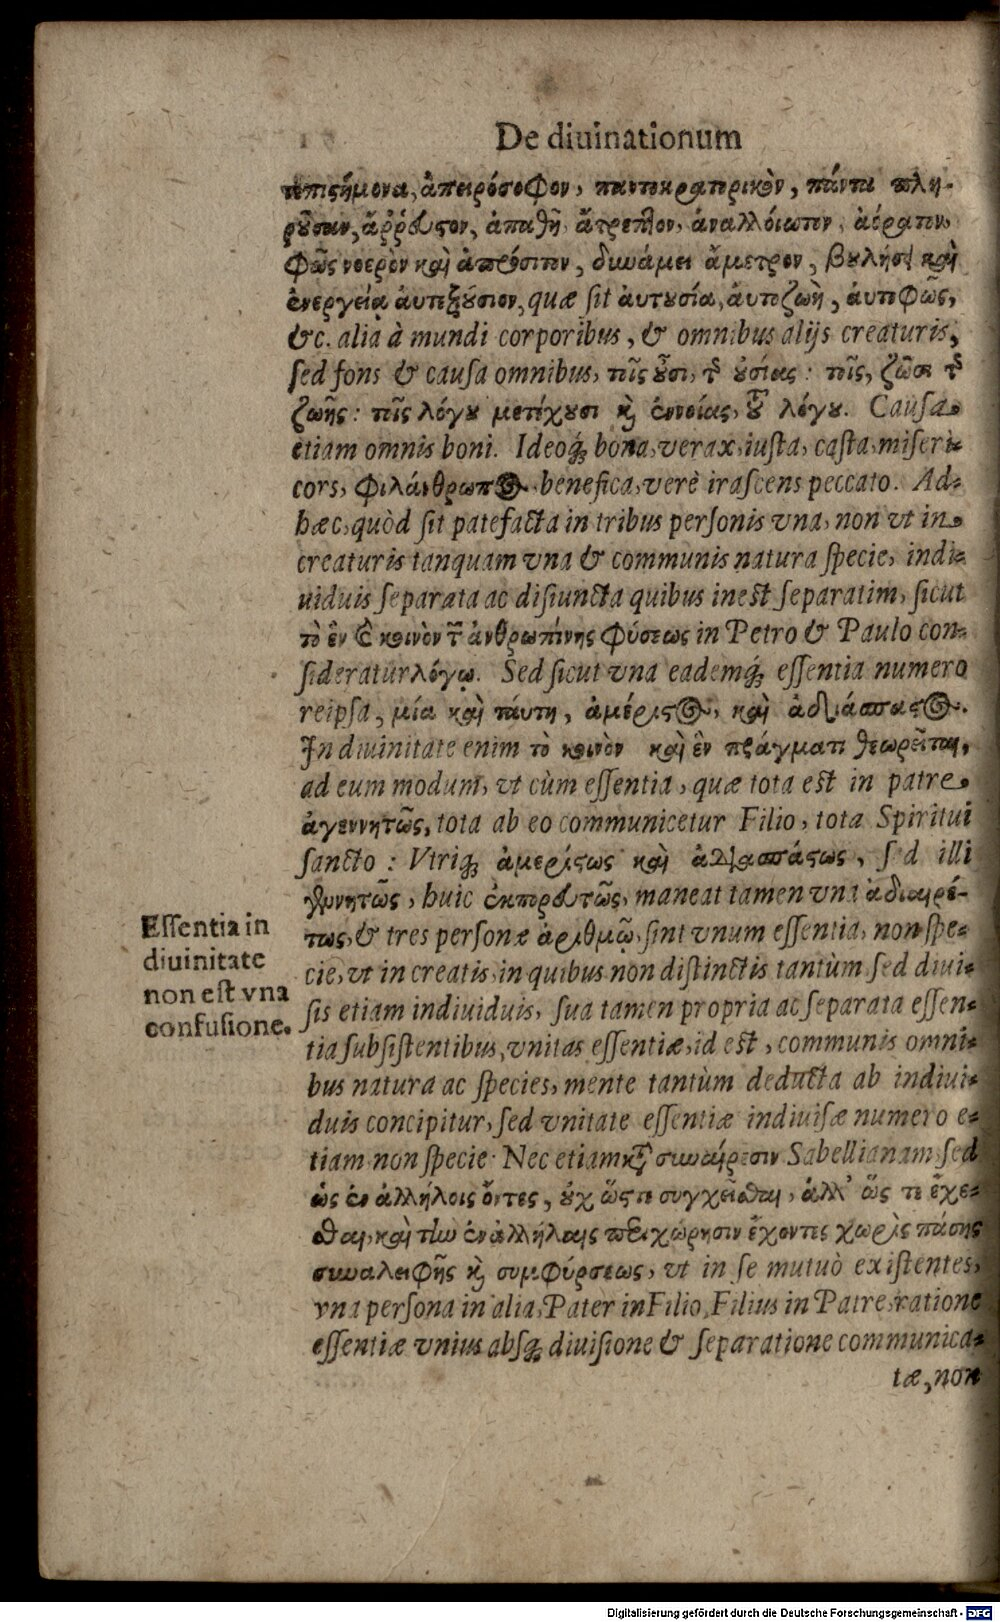 De diuinationum
ἀπειρόσοφον, παντοκρατορικὸν, πάντα πλη-
ροῦσαν, ἄῤῥευστον, ἀπαθῆ, ἄτρεπτον, ἀναλλοίωτον, ἀόρατον,
φῶς νοερὸν καὶ ἀπρόσιτον, δυνάμει ἄμετρον, βουλήσει καὶ
ἐνεργείᾳ ἀυτεξούσιον, quæ ſit ἀυτουσία, ἀυτοζωὴ, ἀυτοφῶς,
&c. alia à mundi corporibus, & omnibus alijs creaturis,
ſed fons & cauſa omnibus, τοῖς οὖσι, τῆς οὐσίας: τοῖς ζῶσι τῆς
ζωῆς: τοῖς λόγου μετέχουσι καὶ ἐννοίας, τοῦ λόγου. Cauſa
etiam omnis boni. Ideoq́; bona, verax, iuſta, caſta, miſeri-
cors, φιλάνθρωπος, benefica, verè iraſcens peccato. Ad-
hæc, quòd ſit patefacta in tribus perſonis vna, non vt in
creaturis tanquam vna & communis natura ſpecie, indi-
uiduis ſeparata ac disiuncta quibus ineſt ſeparatim, ſicut
τὸ ἓν καὶ κοινὸν τῆς ἀνθρωπίνης φύσεως in Petro & Paulo con-
ſideratur λόγῳ. Sed ſicut vna eademq́; eſſentia numero
reipſa, μία καὶ ταύτη, ἀμέριστος, καὶ ἀδιάσπαστος.
In diuinitate enim τὸ κοινὸν καὶ ἓν πράγματι θεωρεῖται,
ad eum modum, vt cùm eſſentia, quæ tota eſt in patre
ἀγεννητῶς, tota ab eo communicetur Filio, tota Spiritui
ſancto: Vtriq; ἀμερίστως καὶ ἀδιασπάστως, ſed illi
γεννητῶς, huic ἐκπορευτῶς, maneat tamen vna ἀδιαιρέ-
τως, & tres perſonæ ἀριθμῷ, ſint vnum eſſentia, non ſpe-
cie, vt in creatis, in quibus non diſtinctis tantùm ſed diui-
ſis etiam indiuiduis, ſua tamen propria ac ſeparata eſſen-
tia ſubſiſtentibus, vnitas eſſentiæ, id eſt, communis omni-
bus natura ac ſpecies, mente tantùm deducta ab indiui-
duis concipitur, ſed vnitate eſſentiæ indiuiſæ numero e-
tiam non ſpecie. Nec etiam κατὰ συναίρεσιν Sabellianam, ſed
ὡς ἐν ἀλλήλοις ὄντες, οὐχ ὥστε συγχεῖσθαι, ἀλλ' ὥστε ἔχε-
σθαι, καὶ τὴν ἐν ἀλλήλαις περιχώρησιν ἔχοντες χωρὶς πάσης
συναλειφῆς καὶ συμφύρσεως, vt in ſe mutuò exiſtentes,
vna perſona in alia, Pater in Filio, Filius in Patre, ratione
eſſentiæ vnius abſq; diuiſione & ſeparatione communica-
tæ, non
Eſſentia in
diuinitate
non eſt vna
confuſione.
Digitalisierung gefördert durch die Deutsche Forschungsgemeinschaft - DFG